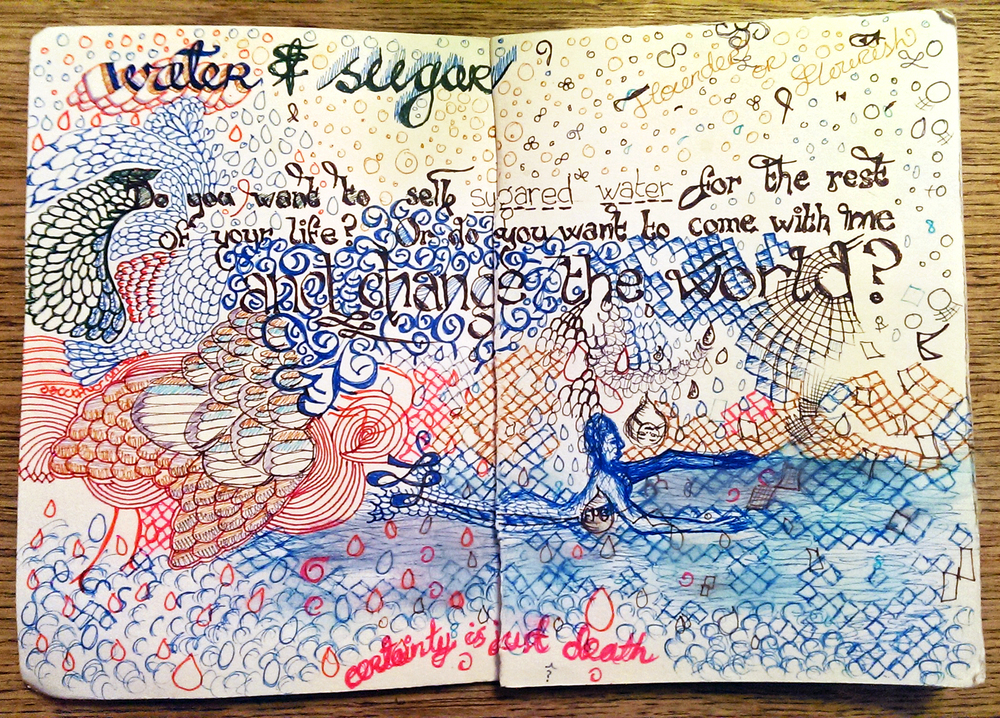 water & sugar
flounder or flourish
Do you want to sell sugared* water for the rest
of your life? Or do you want to come with me
and change the world?
certainty is just death